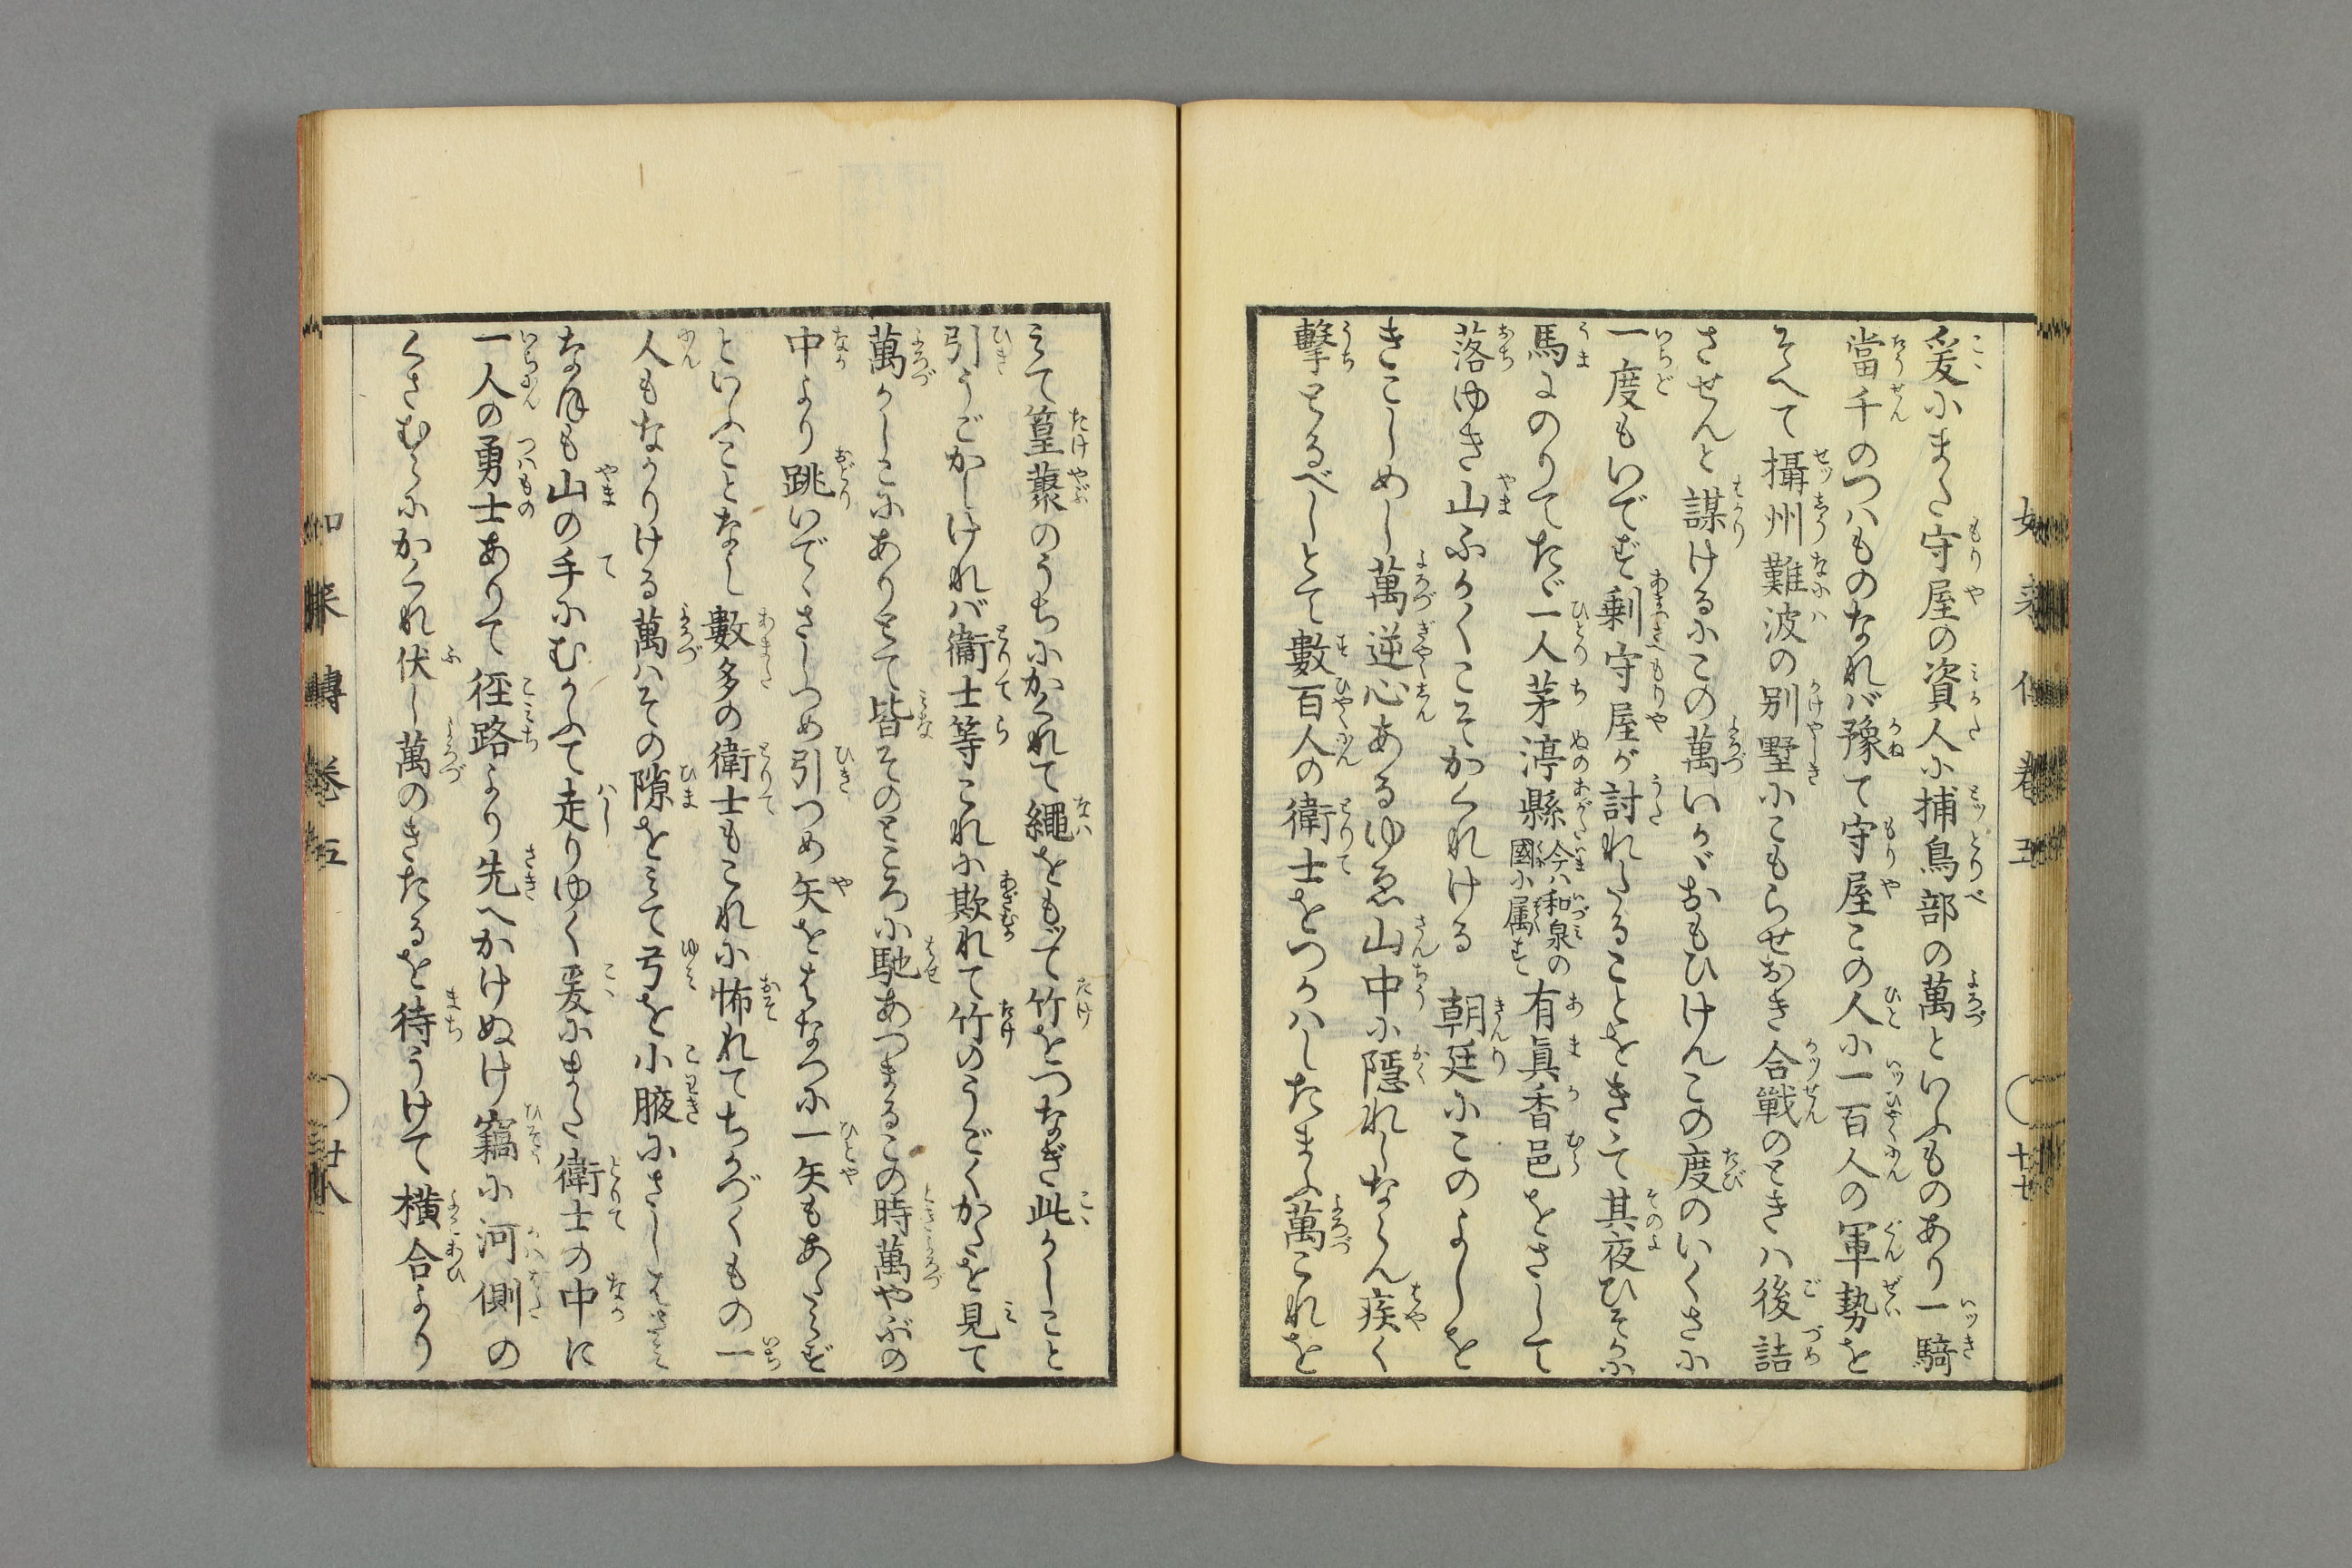 爰にまた守屋の資人に捕鳥部の萬といふものあり一騎
當千のつはものなれバ豫て守屋この人に一百人の軍勢を
そへて攝州難波の別墅にこもらせおき合戦のときハ後詰
させんと謀けるにこの萬いかゞおもひけんこの度のいくさに
一度もいでず剰守屋が討れたることをきゝて其夜ひそかに
馬にのりてたゞ一人茅渟縣今ハ和泉の國に属す有眞香邑をさして
落ゆき山ふかくこそかくれける 朝廷にこのよしを
きこしめし萬逆心あるゆゑ山中に隠れしならん疾く
撃とるべしとて數百人の衛士をつかハしたまふ萬これを
みて篁藂のうちにかくれて繩をもて竹をつなぎ此かしこと
引うごかしけれバ衛士等これに欺れて竹のうごくかたを見て
萬かしこにありとて皆そのところに馳あつまるこの時萬やぶの
中より跳いでゝさしつめ引つめ矢をはなつに一矢もあたらず
といふことなし數多の衛士もこれに怖れてちかづくもの一
人もなかりける萬ハその隙をみて弓を小腋にさしはさみ
なほも山の手にむかふて走りゆく爰にまた衛士の中に
一人の勇士ありて徑路より先へかけぬけ竊に河側の
くさむらにかくれ伏し萬のきたるを待うけて横合より